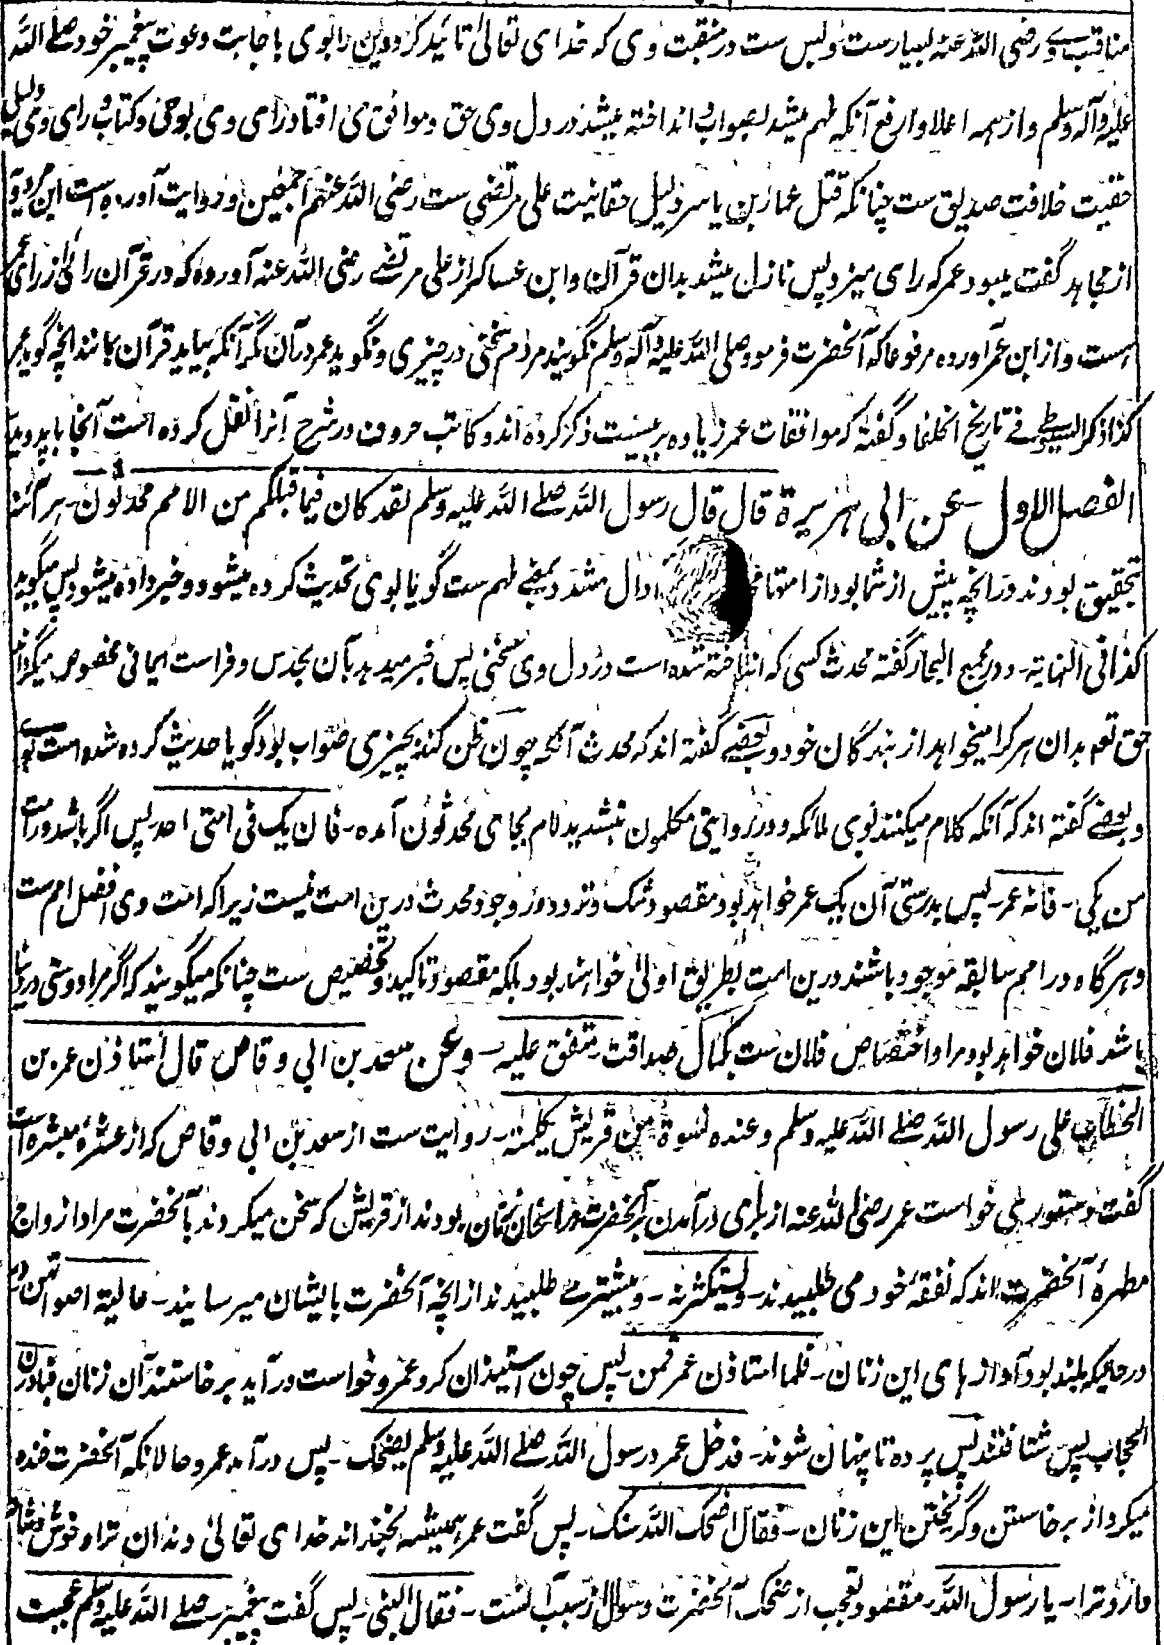 مناقب وے رضی اللہ عنہ بسیارست و بس ست در منقبت وی کہ خدای تعالیٰ تائید کرد دین را بوی باجابت دعوت پیغمبر خود صلے اللہ
علیہ وآلہ وسلم و از ہمہ اعلا و ارفع آنکہ ملہم میشد بصواب و انداختہ میشد در دل وی حق و موافق می افتاد رای وی بوحی و کتاب و رای وی دلیل
حقیت خلافت صدیق ست چنانکہ قتل عمار بن یاسر دلیل حقانیت علی مرتضی ست رضی اللہ عنہم اجمعین و روایت آوردہ است ابن مردویہ
از مجاہد گفت میبود عمر کہ رای میزد پس نازل میشد بدان قرآن و ابن عساکر از علی مرتضے رضی اللہ عنہ آوردہ کہ در قرآن رائی از رای عمر
ہست و از ابن عمر آوردہ مرفوعا کہ آنحضرت فرمود صلی اللہ علیہ وآلہ وسلم نگویند مردم سخنی در چیزی و نگوید عمر در آن مگر آنکہ بیاید قرآن مانند آنچہ گوید عمر
کذا ذکر السیوطے فے تاریخ الخلفا و گفتہ کہ موافقات عمر زیادہ بر بیست ذکر کردہ اند و کاتب حروف در شرح آنرا نقل کردہ است آنجا باید دید
الفصل الاول - عن ابی ہریرة قال قال رسول اللہ صلے اللہ علیہ وسلم لقد کان فیما قبلکم من الامم محدثون - ہر آئنہ
بتحقیق بودند در آنچہ پیش از شما بود از امتہا دال مشدد بمعنے ملہم ست گویا بوی تحدیث کردہ میشود و خبر دادہ میشود پس میگوید
کذا فی النہایة - و در مجمع البحار گفتہ محدث کسی کہ انداختہ شدہ است در دل وی سخنی پس خبر میدہد بآن بحدس و فراست ایمانی مخصوص میگرداند
حق تعم بدان ہر کرا میخواہد از بندگان خود و بعضے گفتہ اند کہ محدث آنکہ چون ظن کند بچیزی صواب بود گویا حدیث کردہ شدہ است بوے
و بعضے گفتہ اند کہ آنکہ کلام میکنند بوی ملائکہ و در روایتی مکلمون بتشدید لام بجای محدثون آمدہ - فان یک فی امتی احد پس اگر باشد در امت
من یکی - فانہ عمر - پس بدرستی آن یک عمر خواہد بود مقصود شک و تردد در وجود محدث درین امت نیست زیرا کہ امت وی افضل امم ست
و ہرگاہ در امم سابقہ موجود باشند درین امت بطریق اولیٰ خواہند بود بلکہ مقصود تاکید و تخصیص ست چنانکہ میگویند کہ اگر مرا دوستی در دنیا
باشد فلان خواہد بود مراد اختصاص فلان ست بکمال صداقت - متفق علیہ - و عن سعد بن ابی وقاص قال استاذن عمر بن
الخطاب علی رسول اللہ صلے اللہ علیہ وسلم و عندہ نسوة من قریش یکلمنہ - روایت ست از سعد بن ابی وقاص کہ از عشرۂ مبشرہ است
گفت دستوری خواست عمر رضی اللہ عنہ از برای در آمدن بر آنحضرت بودند از قریش کہ سخن میکردند بآنحضرت مراد ازواج
مطہرۂ آنحضرت اند کہ نفقہ خود می طلبیدند - ویستکثرنہ - و بیشتر مے طلبیدند از آنچہ آنحضرت بایشان میرسانید - عالیة اصواتہن
در حالیکہ بلند بود آوازہای این زنان - فلما استاذن عمر قمن - پس چون استیذان کرد عمر و خواست در آید برخاستند آن زنان فبادرن
الحجاب پس شتافتند پس پردہ تا پنہان شوند - فدخل عمر و رسول اللہ صلے اللہ علیہ وسلم یضحک - پس در آمد عمر و حالانکہ آنحضرت خندہ
میکرد از برخاستن و گریختن این زنان - فقال اضحک اللہ سنک - پس گفت عمر ہمیشہ بخنداند خدای تعالیٰ دندان ترا و خوش و شاد
دارد ترا - یا رسول اللہ - مقصود تعجب از ضحک آنحضرت و سوال از سبب آنست - فقال النبی - پس گفت پیغمبر - صلے اللہ علیہ وسلم عجبت